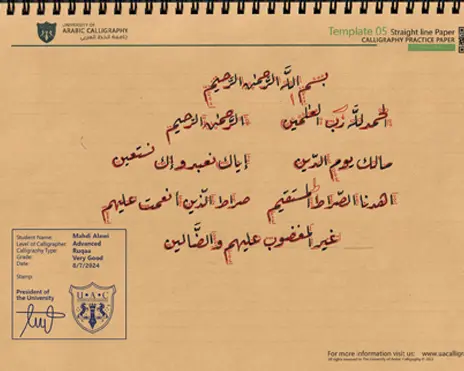 UNIVERSITY OF
ARABIC CALLIGRAPHY
جامعة الخط العربي
Template 05 Straight line Paper
CALLIGRAPHY PRACTICE PAPER
بسم الله الرحمن الرحيم
الحمد لله رب العلمين الرحمن الرحيم
مالك يوم الدين إياك نعبد وإك نستعين
اهدنا الصراط المستقيم صراط الذين انعمت عليهم
غير المغضوب عليهم والضالين
Student Name: Mahdi Alawi
Level of Calligrapher: Advanced
Calligraphy Type: Ruqaa
Grade: Very Good
Date: 8/7/2024
Stamp:
President of
the University
U·A·C
For more information visit us: www.uacalligr
All rights reserved to The University of Arabic Calligraphy © 2022